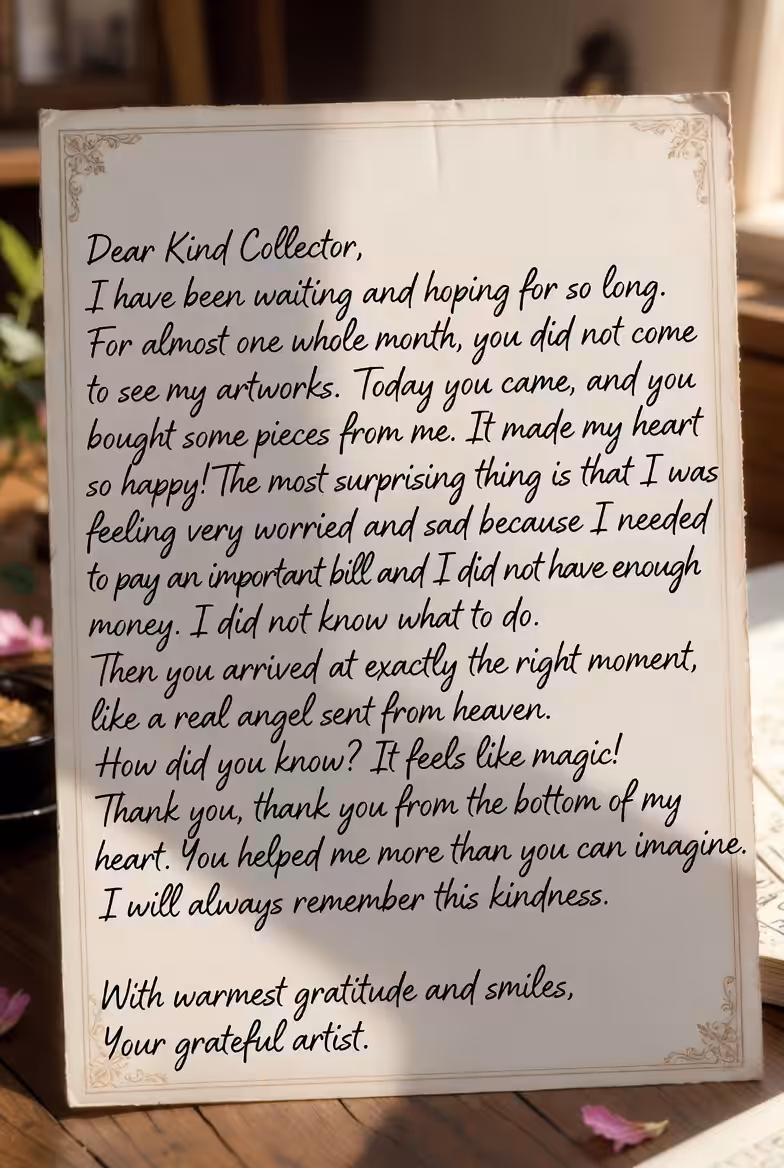 Dear Kind Collector,
I have been waiting and hoping for so long.
For almost one whole month, you did not come
to see my artworks. Today you came, and you
bought some pieces from me. It made my heart
so happy! The most surprising thing is that I was
feeling very worried and sad because I needed
to pay an important bill and I did not have enough
money. I did not know what to do.
Then you arrived at exactly the right moment,
like a real angel sent from heaven.
How did you know? It feels like magic!
Thank you, thank you from the bottom of my
heart. You helped me more than you can imagine.
I will always remember this kindness.
With warmest gratitude and smiles,
Your grateful artist.